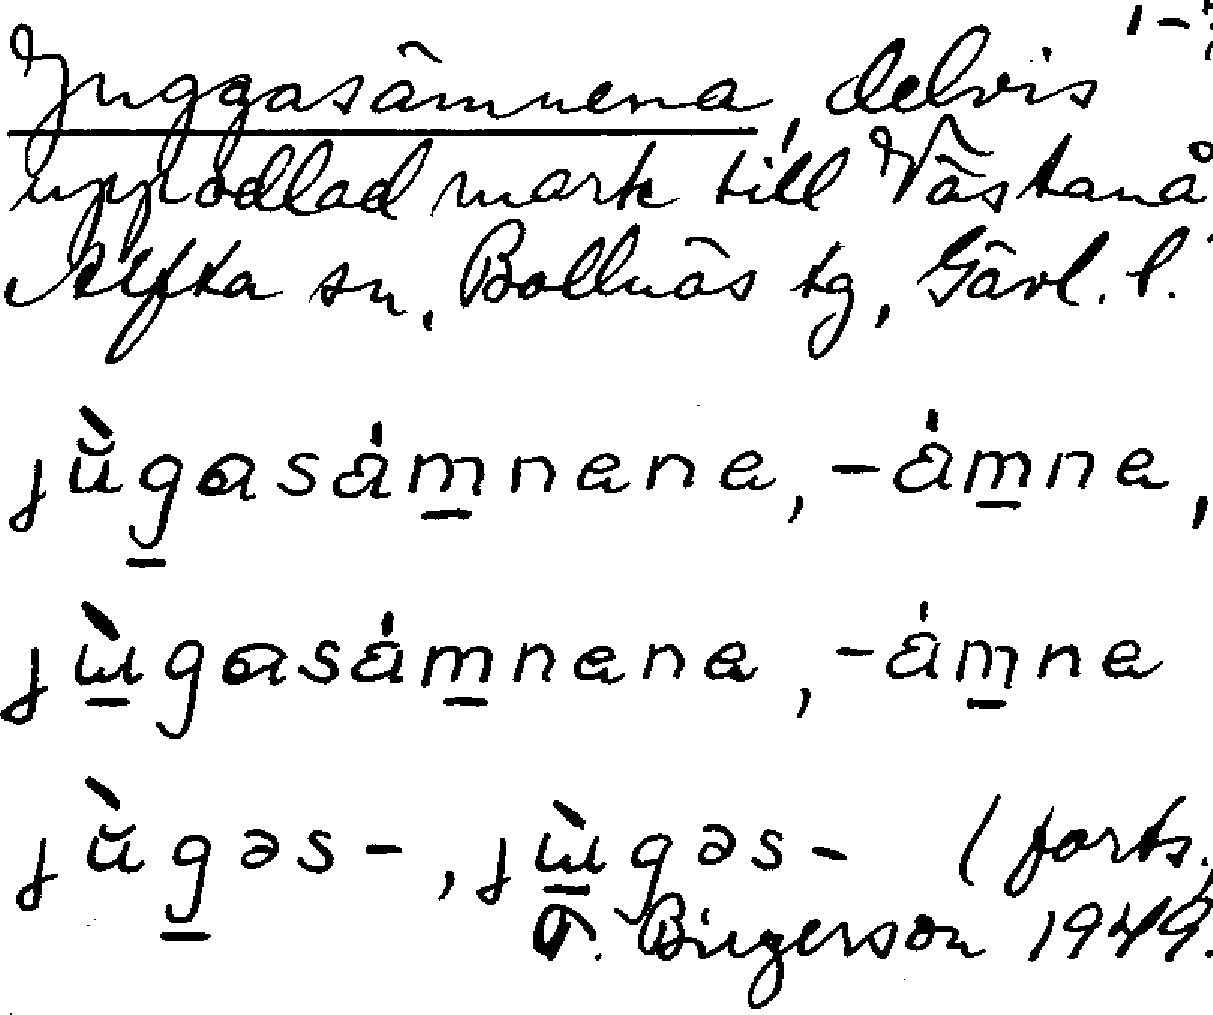 1-
Juggasämnena, delvis
uppodlad mark till Västanå
Alfta sn, Bollnäs tg, Gävl. l.
jŭ̀gasámnena, -ámna,
jɯ̀gasámnena, -ámna
jŭ̀gəs-, jɯ̀gəs- (forts.)
Birgerson 1949.